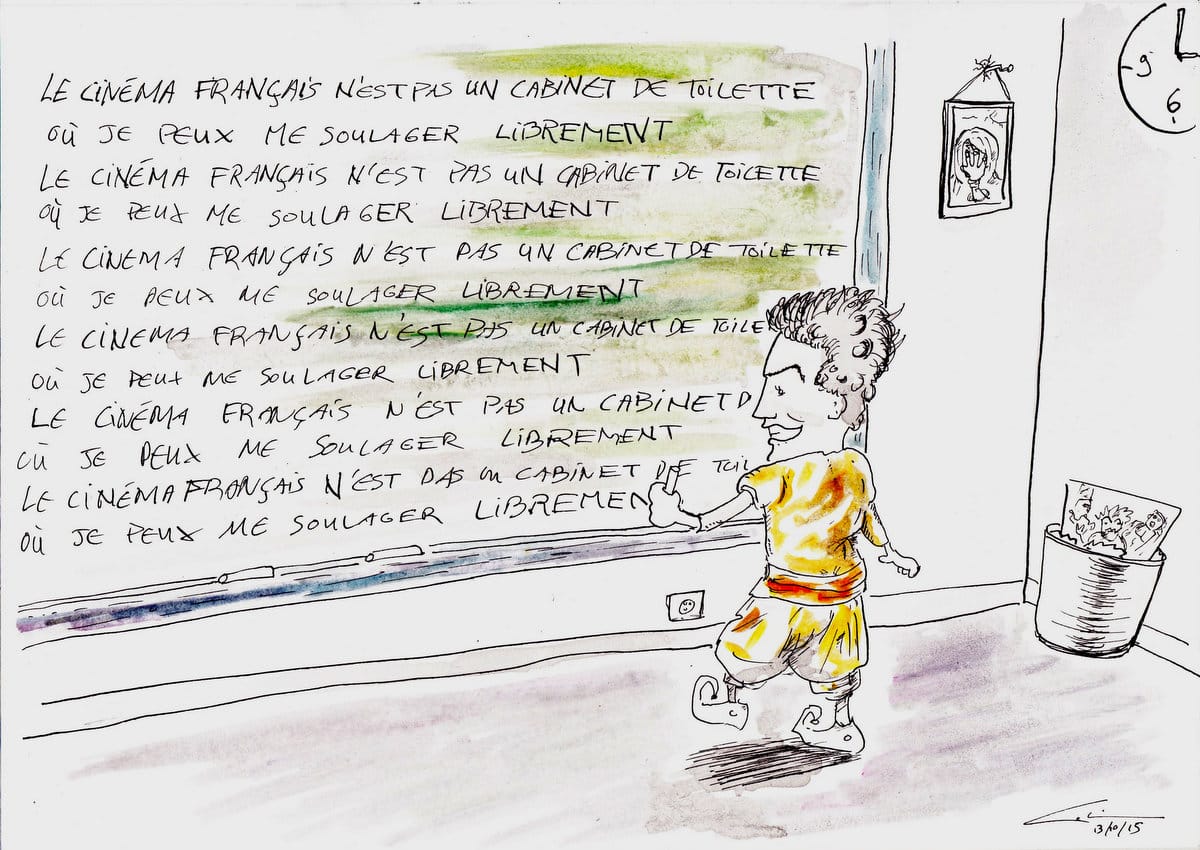 LE CINÉMA FRANÇAIS N'EST PAS UN CABINET DE TOILETTE
OÙ JE PEUX ME SOULAGER LIBREMENT
LE CINÉMA FRANÇAIS N'EST PAS UN CABINET DE TOILETTE
OÙ JE PEUX ME SOULAGER LIBREMENT
LE CINEMA FRANÇAIS N'EST PAS UN CABINET DE TOILETTE
OÙ JE PEUX ME SOULAGER LIBREMENT
LE CINÉMA FRANÇAIS N'EST PAS UN CABINET DE TOILE
OÙ JE PEUX ME SOULAGER LIBREMENT
LE CINÉMA FRANÇAIS N'EST PAS UN CABINET D
OÙ JE PEUX ME SOULAGER LIBREMENT
LE CINÉMA FRANÇAIS N'EST PAS UN CABINET DE TOIL
OÙ JE PEUX ME SOULAGER LIBREMEN
9
6
13/10/15